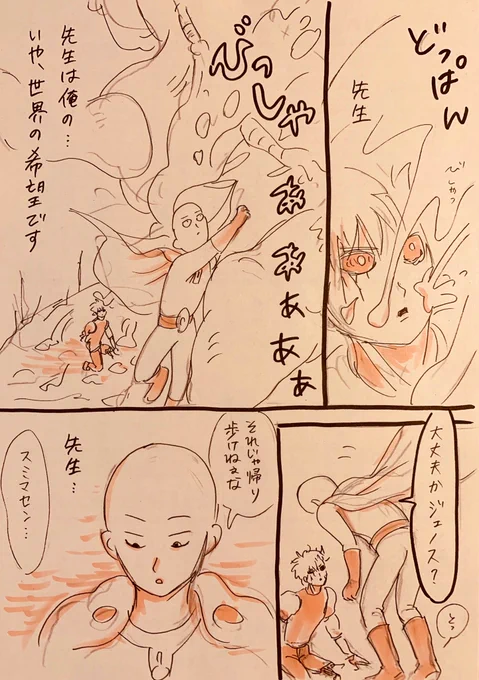 どっぱん
先生
びしゃっ
びっしゃ
ああぁぁぁ
先生は俺の…
いや、世界の希望です
大丈夫かジェノス?
とっ
それじゃ帰り
歩けねぇな
先生…
スミマセン…